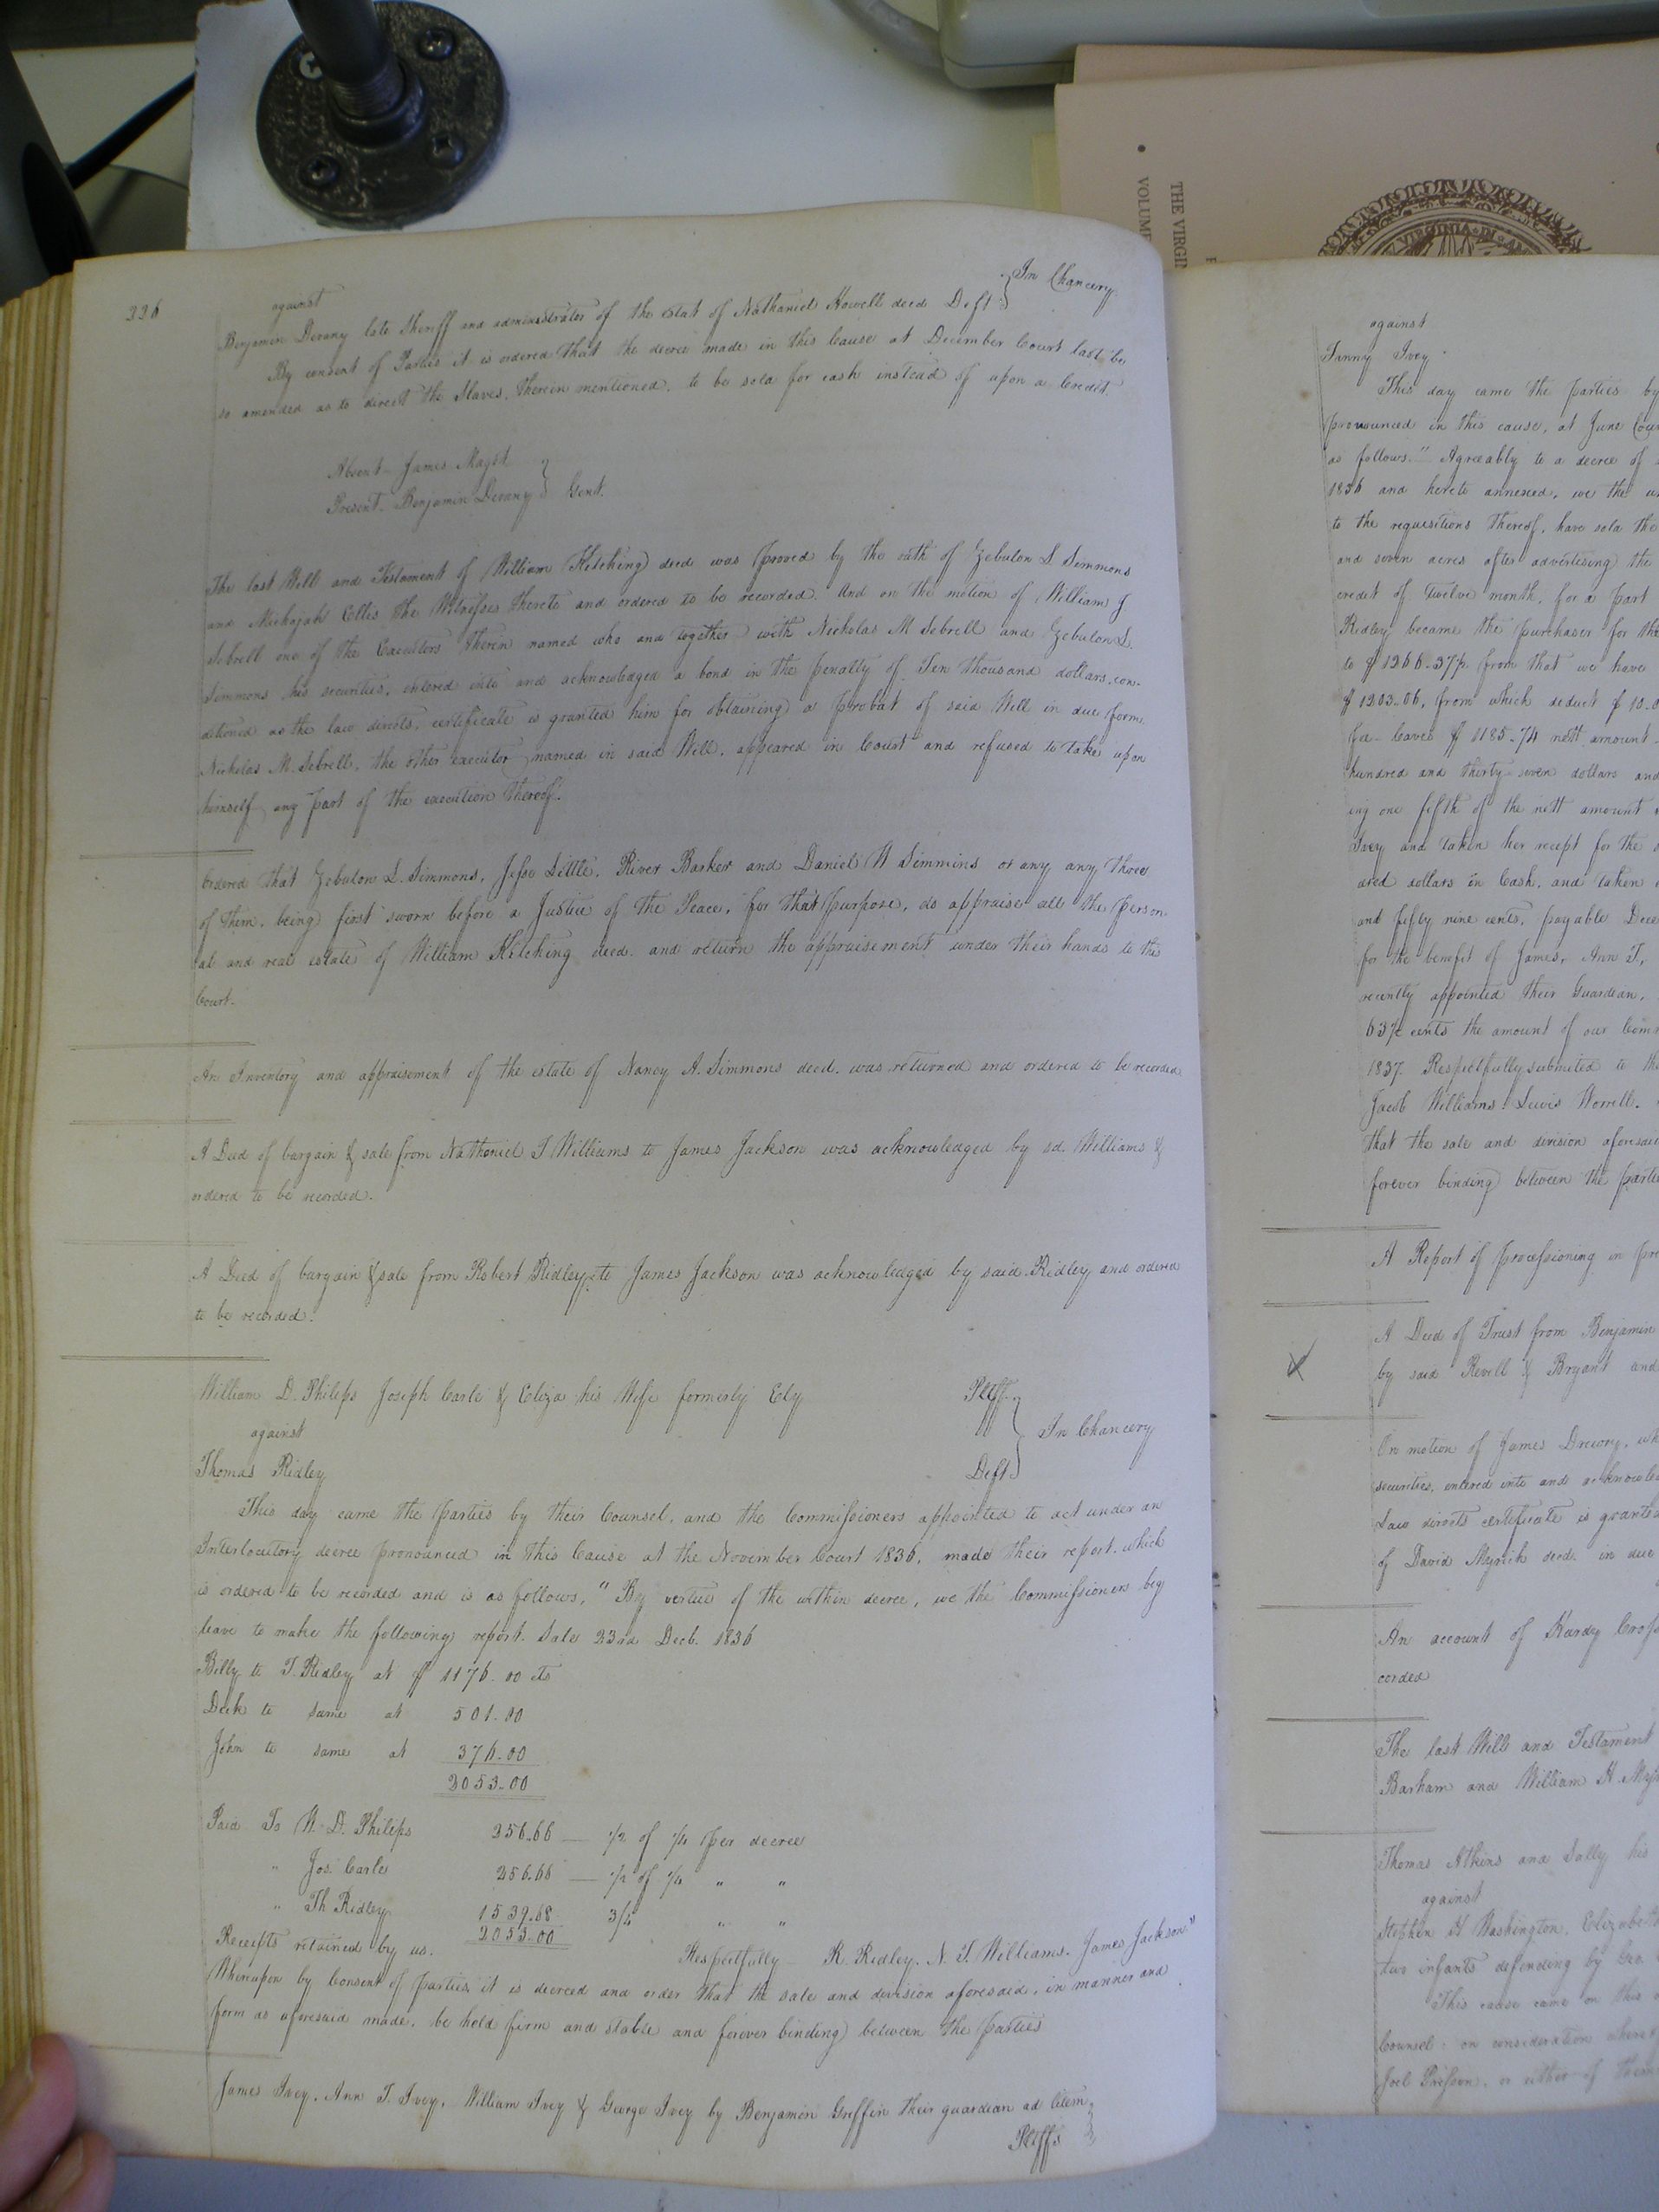 336
against
Benjamin Devany late Sheriff and administrator of the estat of Nathaniel Howell decd Deft } In Chancery
By consent of Parties it is ordered that the decree made in this Cause at December Court last be
so amended as to direct the Slaves, therein mentioned, to be sold for cash instead of upon a Credit.
Absent - James Maget
Present - Benjamin Devany } Gent.
The last Will and Testament of William Kitching decd was proved by the oath of Zebulon S Simmons
and Michajah Ellis the Witnesses thereto and ordered to be recorded. And on the motion of William J
Sebrell one of the Executors therein named who and together with Nicholas M Sebrell and Zebulon S.
Simmons his securities, entered into and acknowledged a bond in the penalty of Ten thousand dollars, con-
ditioned as the law directs, certificate is granted him for obtaining a probat of said Will in due form.
Nicholas M. Sebrell, the other executor named in said Will, appeared in Court and refused to take upon
himself any part of the execution thereof.
Ordered that Zebulon S. Simmons, Jesse Little, River Barker and Daniel W Simmins or any any three
of them, being first sworn before a Justice of the Peace, for that purpose, do appraise all the person-
al and real estate of William Kitching decd. and return the appraisement under their hands to this
Court.
An Inventory and appraisement of the estate of Nancy A. Simmons decd. was returned and ordered to be recorded
A Deed of bargain & sale from Nathaniel T Williams to James Jackson was acknowledged by sd. Williams &
ordered to be recorded.
A Deed of bargain & sale from Robert Ridley to James Jackson was acknowledged by said Ridley and ordered
to be recorded.
William D. Philips Joseph Carle & Eliza his Wife formerly Ely Pltff.
against } In Chancery
Thomas Ridley Deft
This day came the parties by their Counsel, and the Commissioners appointed to act under an
Interlocutory decree pronounced in this Cause at the November Court 1836, made their report, which
is ordered to be recorded and is as follows, "By vertue of the within decree, we the Commissioners beg
leave to make the following report. Sale 23rd Decb. 1836
Billy to T. Ridley at $ 1176.00 cts
Dick to same at 501.00
John to same at 376.00
2053.00
Paid To W. D. Philips 256.66 — 1/2 of 1/4 per decree
" Jos. Carle 256.66 — 1/2 of 1/4 " "
" Th Ridley 1539.68 3/4 " "
2053.00
Receipts retained by us. Respectfully - R. Ridley. N. T. Williams. James Jackson."
Whereupon by Consent of parties it is decreed and order that the sale and division aforesaid, in manner and
form as aforesaid made, be held firm and stable and forever binding between the parties
James Ivey, Ann T. Ivey, William Ivey & George Ivey by Benjamin Griffin their guardian ad litem }
Pltffs
THE VIRGIN
VOLUME
VIRGINIA
against
Fanny Ivey
This day came the parties by
pronounced in this cause, at June Cou
as follows." Agreeably to a decree of
1836 and hereto annexed, we the
to the requisitions thereof, have sold the
and seven acres after advertising the
credit of twelve month, for a part
Ridley became the purchaser for the
to $ 1266.37½ from that we have
$ 1203.06, from which deduct $ 10.
leaves $ 1185.74 nett amount
hundred and thirty seven dollars and
ing one fifth of the nett amount
Ivey and taken her recept for the
dred dollars in Cash, and taken
and fifty nine cents, payable Dece
for the benefit of James, Ann T,
recently appointed their Guardian,
63½ cents the amount of our Com
1837. Respectfully submited to the
Jacob Williams. Lewis Worrell.
that the sale and division aforesaid
forever binding between the partie
A Report of processioning in pre
A Deed of Trust from Benjamin
by said Revill & Bryant and
On motion of James Drewry, wh
securities, entered into and acknowled
Law directs certificate is granted
of David Myrick decd. in due
An account of Hardy Cross
corded
The last Will and Testament
Barham and William H
Thomas Atkins and Sally his
against
Stephen H Washington, Elizabeth
two infants defending by Geo.
This cause came on this
Counsel: on consideration where
or either of them